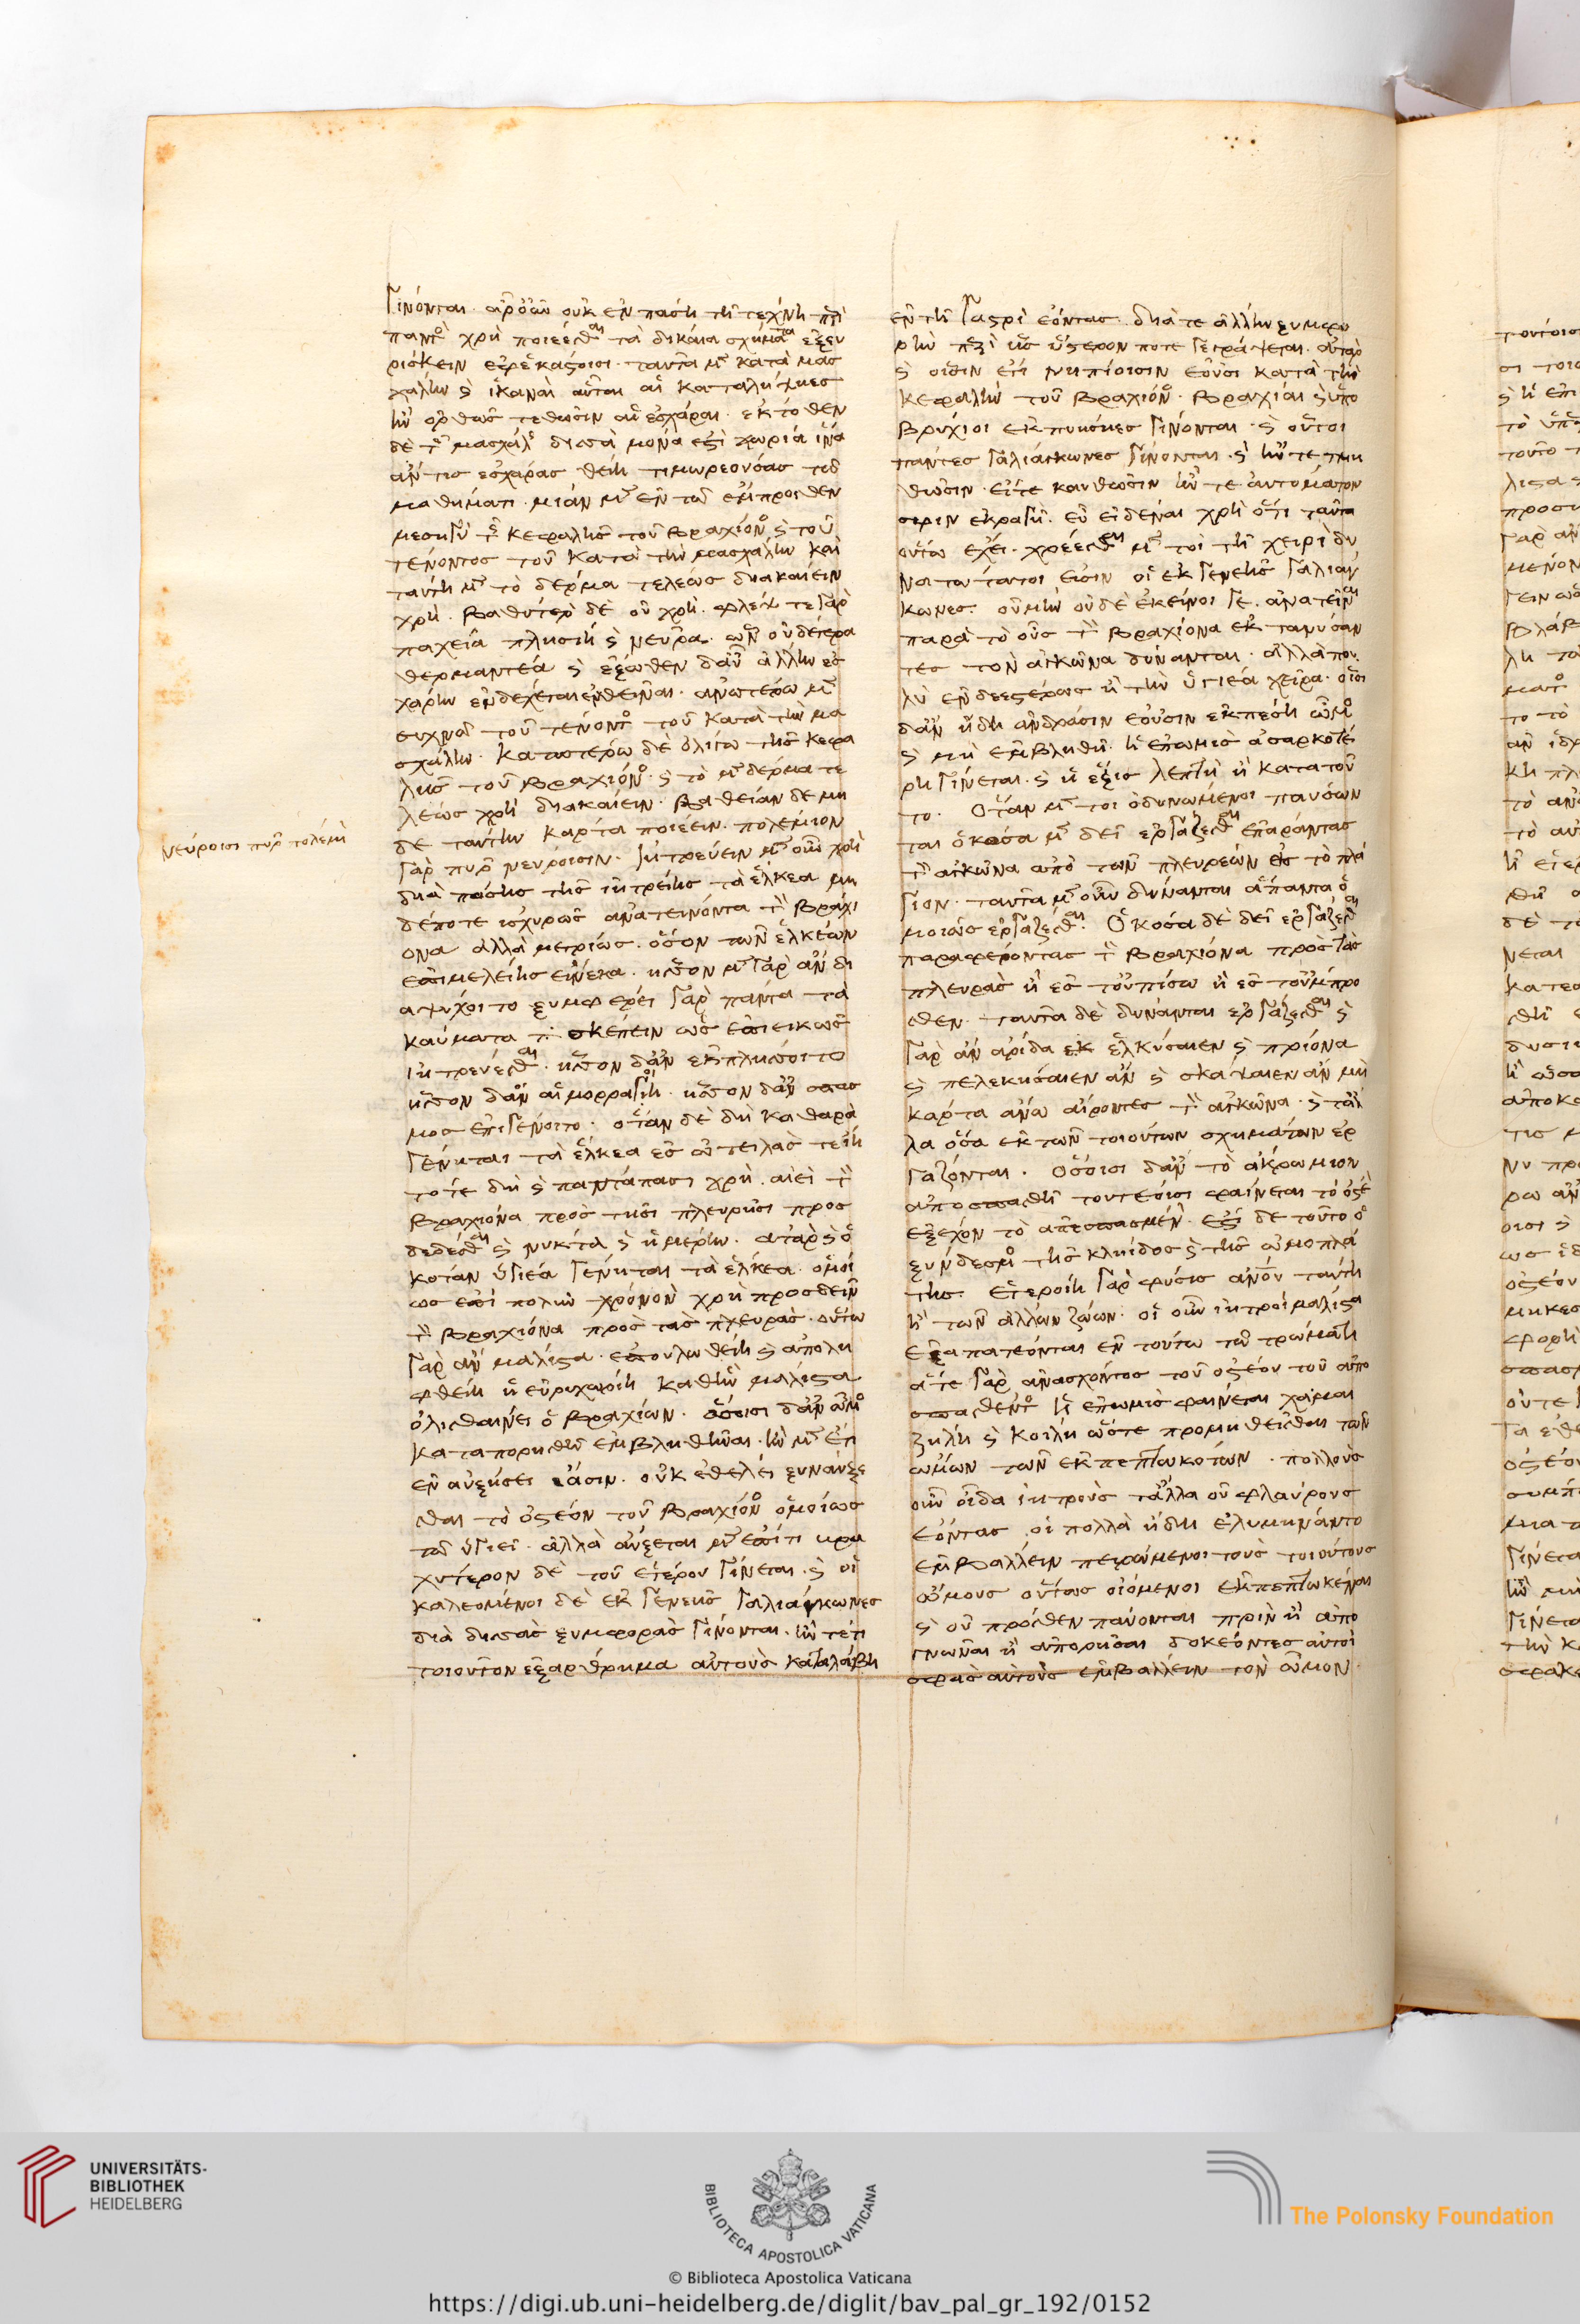 νεύροισι πῦρ πολέμι
γίνονται. ἆρ' οὖν οὐκ ἐν πάση τῆ τέχνη περὶ
παντὸς χρὴ ποιέεσθαι τὰ δίκαια σχήματα ἐξευ
ρίσκειν ἐφ' ἑκάστοισι. ταῦτα μὲν κατὰ μασ
χάλην καὶ ἱκαναὶ αὗται αἱ καταλήψιες
ἢν ὀρθῶς τεθῶσιν αἱ ἐσχάραι. ἔκτοθεν
δὲ τῆς μασχάλης δισσὰ μόνα ἐστὶ χωρία ἵνα
ἄν τις ἐσχάρας θείη τιμωρεούσας τῶ
μαθήματι. μίαν μὲν ἐν τῶ ἔμπροσθεν
μεσηγὺ τῆς κεφαλῆς τοῦ βραχίονος καὶ τοῦ
τένοντος τοῦ κατὰ τὴν μασχάλην καὶ
ταύτη μὲν τὸ δέρμα τελέως διακαίειν
χρή. βαθύτερον δὲ οὐ χρή. φλέψ τε γὰρ
παχεία πλησίη καὶ νεῦρα. ὧν οὐδέτερα
θερμαντέα καὶ ἔξωθεν δ' αὖ ἄλλην ἐσ
χάρην ἐνδέχεται ἐνθεῖναι. ἀνωτέρω μὲν
συχνῶ τοῦ τένοντος τοῦ κατὰ τὴν μα
σχάλην. κατωτέρω δὲ ὀλίγω τῆς κεφα
λῆς τοῦ βραχίονος. καὶ τὸ μὲν δέρμα τε
λέως χρὴ διακαίειν. βαθείαν δὲ μη
δὲ ταύτην κάρτα ποιέειν. πολέμιον
γὰρ πῦρ νεύροισιν. ἰητρεύειν μὲν οὖν χρὴ
διὰ πάσης τῆς ἰητρείης τὰ ἕλκεα μη
δέποτε ἰσχυρῶς ἀνατείνοντα τὸν βραχί
ονα ἀλλὰ μετρίως. ὅσον τῶν ἑλκέων
ἐπιμελείης εἵνεκα. ἧσσον μὲν γὰρ ἂν δι
αψύχοιτο ξυμφέρει γὰρ πάντα τὰ
καύματα σκέπειν ὡς ἐπιεικῶς
ἰητρεύεσθαι. ἧσσον δ' ἂν ἐκπλίσσοιτο
ἧσσον δ' ἂν αἱμορραγοίη. ἧσσον δ' ἂν σπασ
μὸς ἐπιγένοιτο. ὅταν δὲ δὴ καθαρὰ
γένηται τὰ ἕλκεα ἐς ὠτειλάς τε ἴη
τότε δὴ καὶ παντάπασι χρὴ αἰεὶ τὸν
βραχίονα πρὸς τῆσι πλευρῆσι προσ
δεδέσθαι καὶ νύκτα καὶ ἡμέρην. ἀτὰρ καὶ ὁ
κόταν ὑγιέα γένηται τὰ ἕλκεα. ὁμοί
ως ἐπὶ πολὺν χρόνον χρὴ προσδεῖν
τὸν βραχίονα πρὸς τὰς πλευράς. οὕτω
γὰρ ἂν μάλιστα ἐπουλωθείη καὶ ἀπολη
φθείη ἡ εὐρυχωρίη καθ' ἣν μάλιστα
ὀλισθαίνει ὁ βραχίων. ὅσοισι δ' ἂν ὦμος
καταπορηθῆ ἐμβληθῆναι. ἢν μὲν ἔτι
ἐν αὐξήσει ἔασιν. οὐκ ἐθέλει ξυναύξε
σθαι τὸ ὀστέον τοῦ βραχίονος ὁμοίως
τῶ ὑγιεῖ. ἀλλὰ αὔξεται μὲν ἐπί τι βρα
χύτερον δὲ τοῦ ἑτέρου γίνεται. καὶ οἱ
καλεόμενοι δὲ ἐκ γενεῆς γαλιάγκωνες
διὰ δισσὰς ξυμφορὰς γίνονται. ἤν τέ τι
τοιοῦτον ἐξάρθρημα αὐτοὺς καταλάβη
ἐν τῆ γαστρὶ ἐόντας. διά τε ἄλλην ξυμφο
ρὴν περὶ ἧς ὕστερόν ποτε γεγράψεται. ἀτὰρ
καὶ οἷσιν ἔτι νηπίοισιν ἐοῦσι κατὰ τὴν
κεφαλὴν τοῦ βραχίονος. βραχίαι καὶ ὑπο
βρύχιοι ἐκπυήσιες γίνονται. καὶ οὗτοι
πάντες γαλιάγκωνες γίνονται. καὶ ἤν τε τμη
θῶσιν. εἴτε καυθῶσιν ἤν τε αὐτόματόν
σφιν ἐκραγῆ. εὖ εἰδέναι χρὴ ὅτι ταῦτα
οὕτω ἔχει. χρέεσθαι μέν τοι τῆ χειρὶ δυ
νατώτατοι εἰσιν οἱ ἐκ γενεῆς γαλιάγ
κωνες. οὐ μὴν οὐδὲ ἐκεῖνοι γε. ἀνατεῖναι
παρὰ τὸ οὖς τὸν βραχίονα ἐκτανύσαν
τες τὸν ἀγκῶνα δύνανται. ἀλλὰ που
λὺ ἐνδεεστέρως ἢ τὴν ὑγιέα χεῖρα. οἷσι
δ' ἂν ἤδη ἀνδράσιν ἐοῦσιν ἐκπέση ὦμος
καὶ μὴ ἐμβληθῆ. ἡ ἐπωμὶς ἀσαρκοτέ
ρη γίνεται. καὶ ἡ ἕξις λεπτὴ ἡ κατὰ τοῦ
το. Ὅταν μέν τοι ὀδυνώμενοι παύσων
ται ὁκόσα μὲν δεῖ ἐργάζεσθαι ἐπάραντας
τὸν ἀγκῶνα ἀπὸ τῶν πλευρέων ἐς τὸ πλά
γιον. ταῦτα μὲν οὖν δύνανται ἅπαντα ὁ
μοίως ἐργάζεσθαι. Ὁκόσα δὲ δεῖ ἐργάζεσθαι
παραφέροντας τὸν βραχίονα πρὸς τὰς
πλευρὰς ἢ ἐς τοὐπίσω ἢ ἐς τοὔμπρο
σθεν. ταῦτα δὲ δύνανται ἐργάζεσθαι καὶ
γὰρ ἂν ἀρίδα ἑλκύσαιεν καὶ πρίονα
καὶ πελεκήσαιεν ἂν καὶ σκάψαιεν ἂν μὴ
κάρτα ἄνω αἴροντες τὸν ἀγκῶνα. καὶ τἆλ
λα ὅσα ἐκ τῶν τοιούτων σχημάτων ἐρ
γάζονται. Ὅσοισι δ' ἂν τὸ ἀκρώμιον
ἀποσπασθῆ τουτέοισι φαίνεται τὸ ὀστέον
ἐξέχον τὸ ἀπεσπασμένον. ἐστὶ δὲ τοῦτο ὁ
ξύνδεσμος τῆς κληίδος καὶ τῆς ὠμοπλά
της. ἑτεροίη γὰρ φύσις ἀνθρώπου ταύτη
ἢ τῶν ἄλλων ζώων. οἱ οὖν ἰητροὶ μάλιστα
ἐξαπατέονται ἐν τούτω τῶ τρώματι
ἅτε γὰρ ἀνασχόντος τοῦ ὀστέου τοῦ ἀπο
σπασθέντος ἡ ἐπωμὶς φαίνεται χαμαι
ζήλη καὶ κοίλη ὥστε προμηθεῖσθαι τῶν
ὤμων τῶν ἐκπεπτωκότων. πολλοὺς
οὖν οἶδα ἰητροὺς τἆλλα οὐ φλαύρους
ἐόντας οἳ πολλὰ ἤδη ἐλυμήναντο
ἐμβάλλειν πειρώμενοι τοὺς τοιούτους
ὤμους οὕτως οἰόμενοι ἐκπεπτωκέναι
καὶ οὐ πρόσθεν παύονται πρὶν ἢ ἀπο
γνῶναι ἢ ἀπορῆσαι δοκέοντες αὐτοὶ
σφᾶς αὐτοὺς ἐμβάλλειν τὸν ὦμον.
UNIVERSITÄTS-
BIBLIOTHEK
HEIDELBERG
BIBLIOTECA APOSTOLICA VATICANA
The Polonsky Foundation
© Biblioteca Apostolica Vaticana
https://digi.ub.uni-heidelberg.de/diglit/bav_pal_gr_192/0152